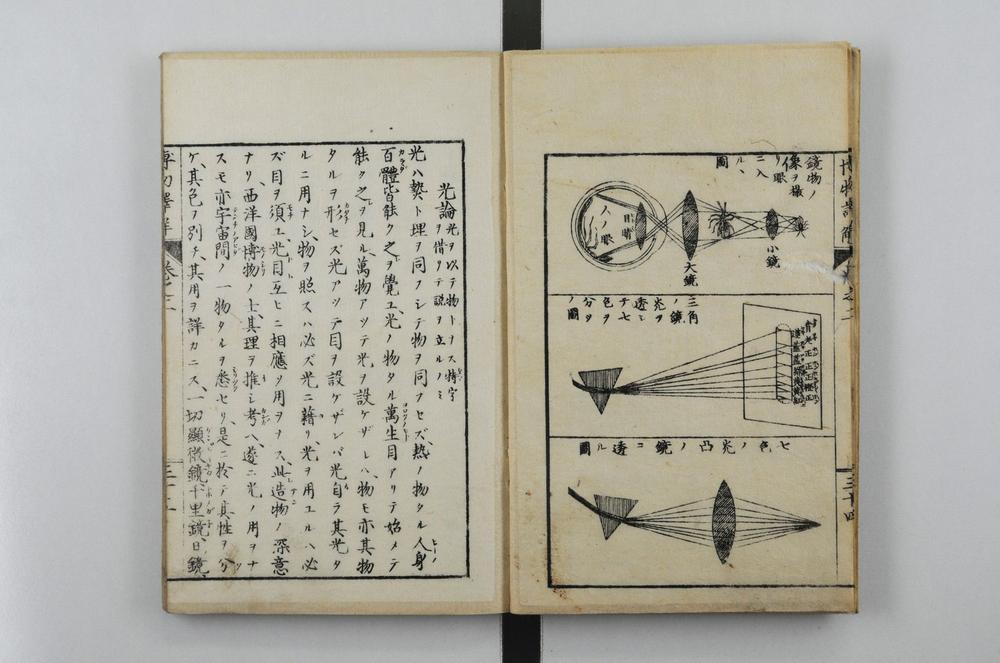 鏡物ノ
像ヲ撮
リ眼
ニ入
ル、
圖
人ノ眼
目睛
大鏡
小鏡
三角
鏡
ノ光ヲ
透シテ七
色ヲ分
ツノ圖
七色ノ光凸鏡ニ透ル圖
三十四
光論 光ヲ以テ物トナス特字
ヲ借リテ説ヲ立ルノミ
光ハ𤍠ト理ヲ同フシテ物ヲ同フセズ、熱ノ物タル人身
百體皆能ク之ヲ覺ユ、光ノ物タル萬生目アリテ始メテ
能ク之ヲ見ル、萬物アツテ光ヲ設ケザレハ、物モ亦其物
タルヲ形セズ、光アツテ目ヲ設ケザレバ光自ラ其光タ
ルニ用ナシ、物ヲ照スハ必ズ光ニ藉リ、光ヲ用ユルハ必
ズ目ヲ須ユ、光目互ヒニ相應タ用ヲナス、此造物ノ深意
ナリ、西洋國博物ノ士其理ヲ推シ考ヘ、遂ニ光ノ用ヲナ
スモ亦宇宙間ノ一物タルヲ悉セリ、是ニ於テ其性ヲ分
ケ、其色ヲ別チ、其用ヲ詳カニス、一切顯微鏡、千里鏡、日鏡、